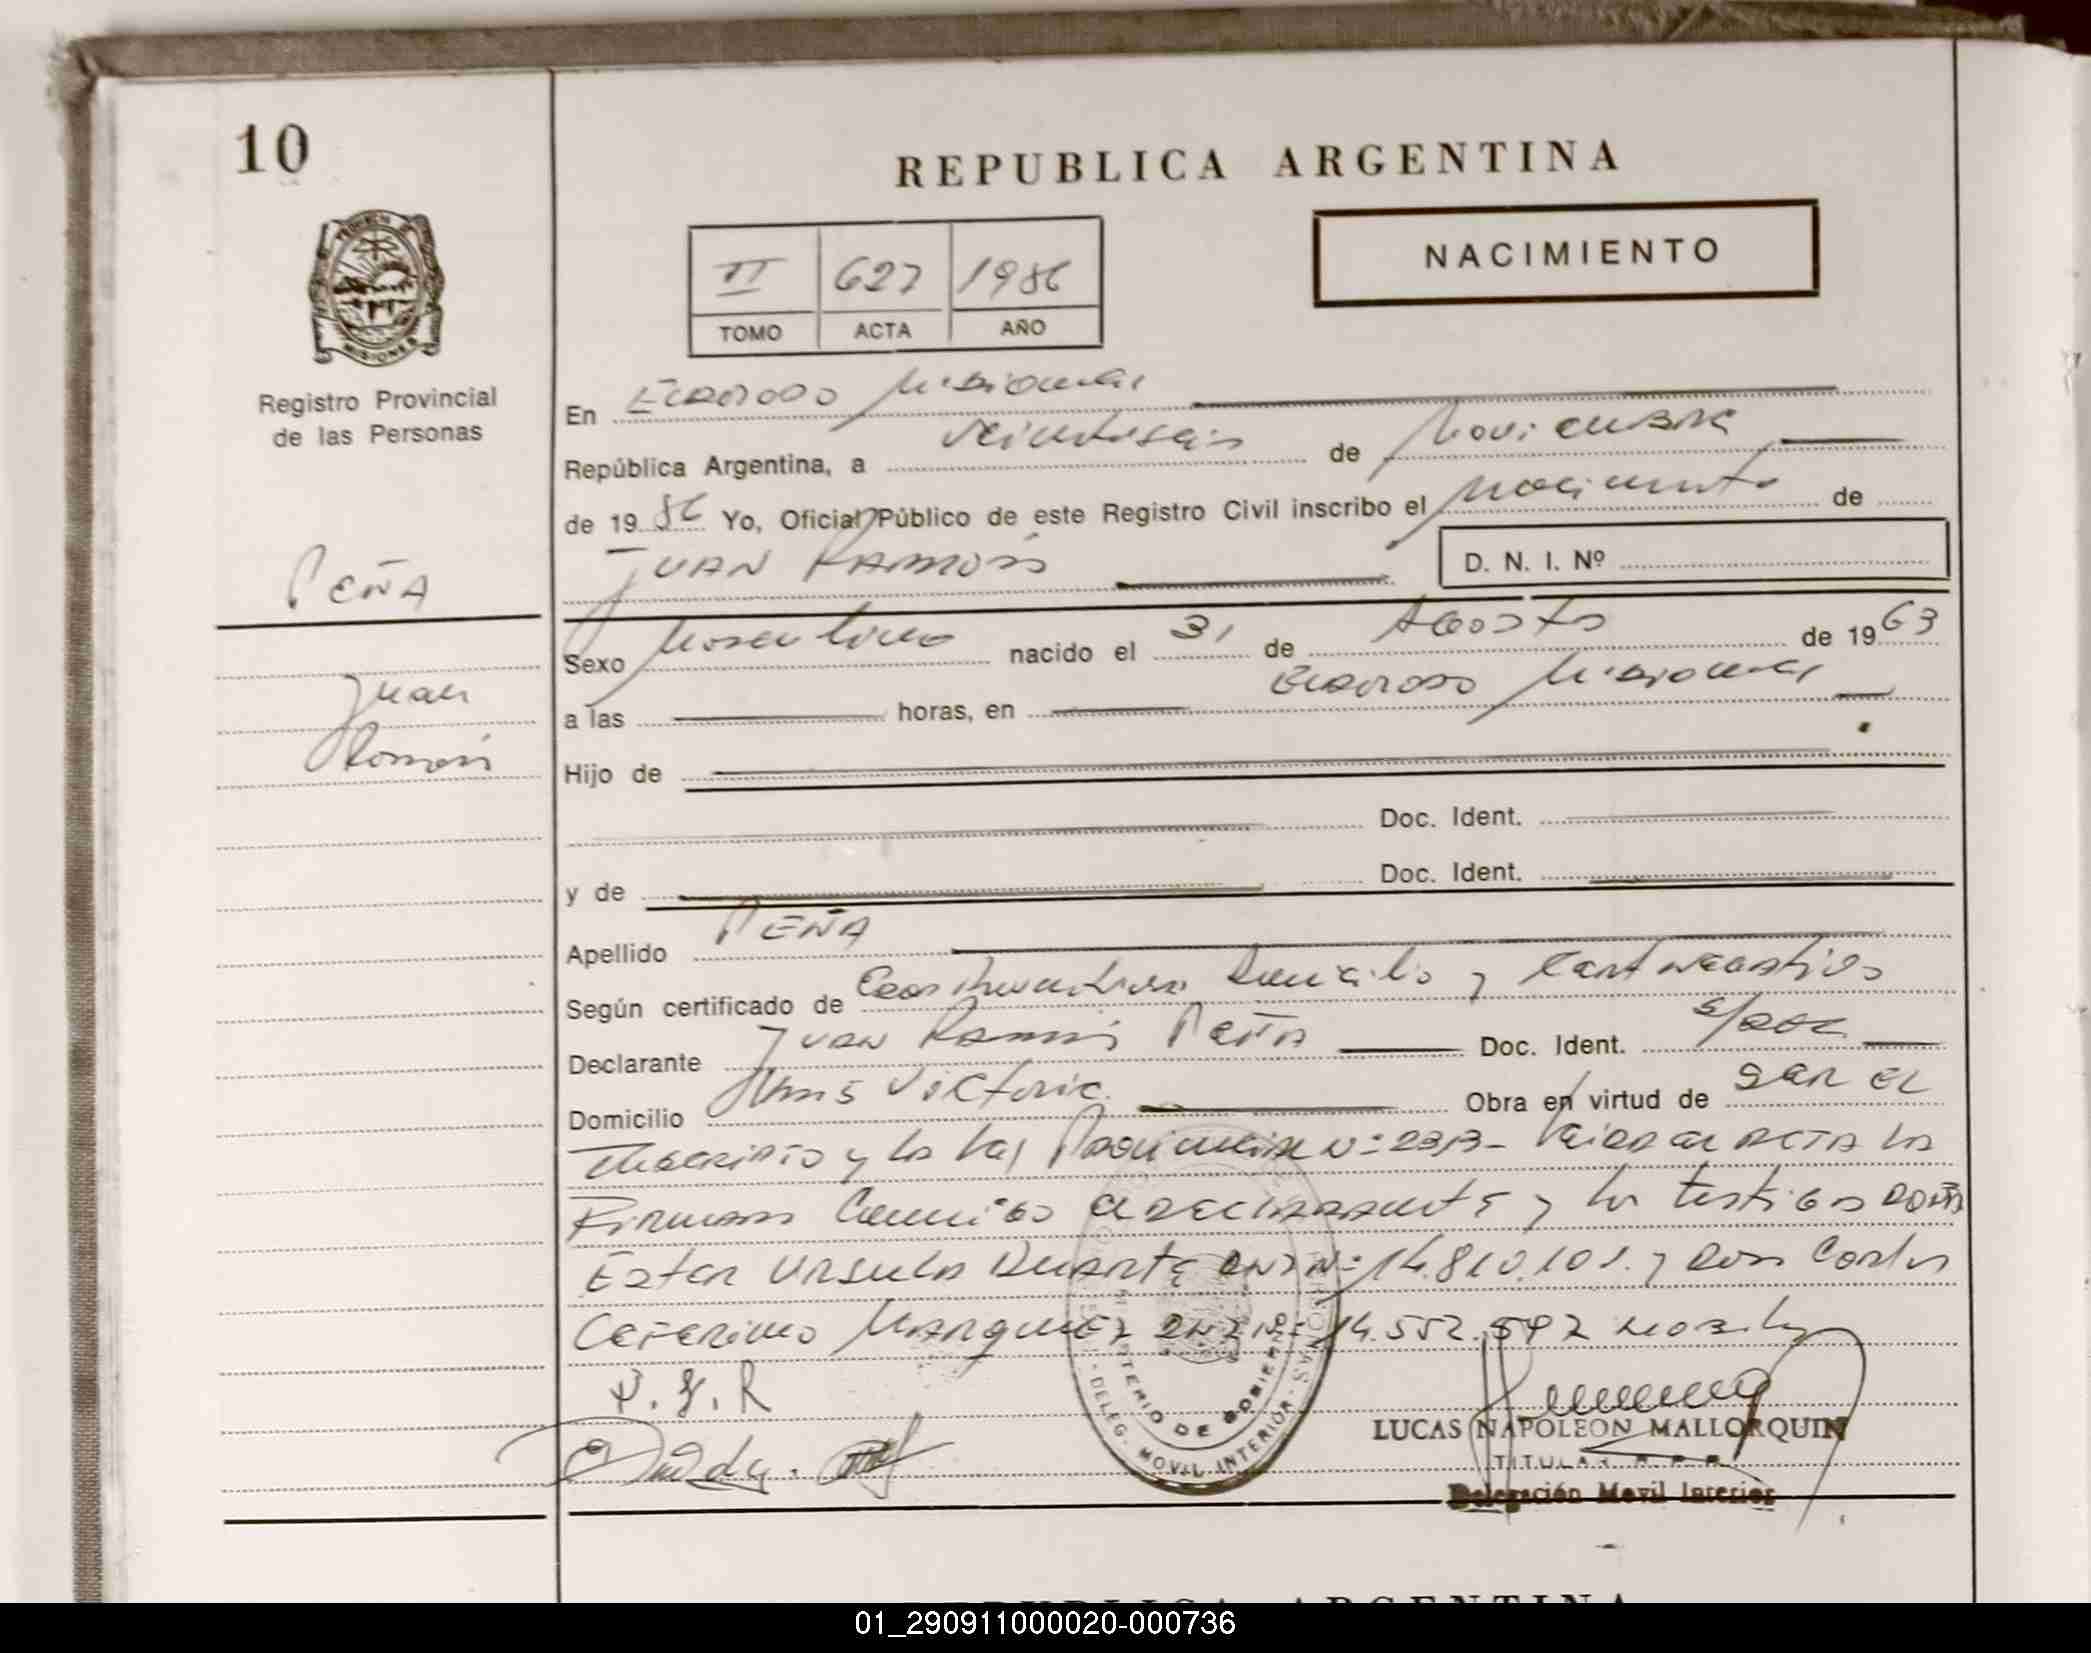 10
REPUBLICA ARGENTINA
NACIMIENTO
II 627 1986
TOMO ACTA AÑO
Registro Provincial
de las Personas
En Eldorado Misiones
República Argentina, a veintiseis de Noviembre
de 1986 Yo, Oficial Público de este Registro Civil inscribo el nacimiento de
JUAN RAMON
D. N. I. Nº
PEÑA
Juan
Ramon
Sexo Masculino nacido el 31 de Agosto de 1963
a las horas, en Eldorado Misiones
Hijo de
Doc. Ident.
y de Doc. Ident.
Apellido PEÑA
Según certificado de Domicilio y
Declarante Juan Ramon Peña Doc. Ident. S/Doc
Domicilio Victoria Obra en virtud de SER EL
inscripto y la Ley Nº 2313- Leida el ACTA la
Firman Conmigo el declarante y los testigos Doña
Ester Ursula Duarte DNI Nº 14.810.101 y Don Carlos
Ceferino Marquez DNI Nº 14.552.592
P. J. R
MINISTERIO DE GOBIERNO
DELEG. MOVIL INTERIOR
LUCAS NAPOLEON MALLORQUIN
TITULAR
Delegación Movil Interior
REPUBLICA ARGENTINA
01_290911000020-000736